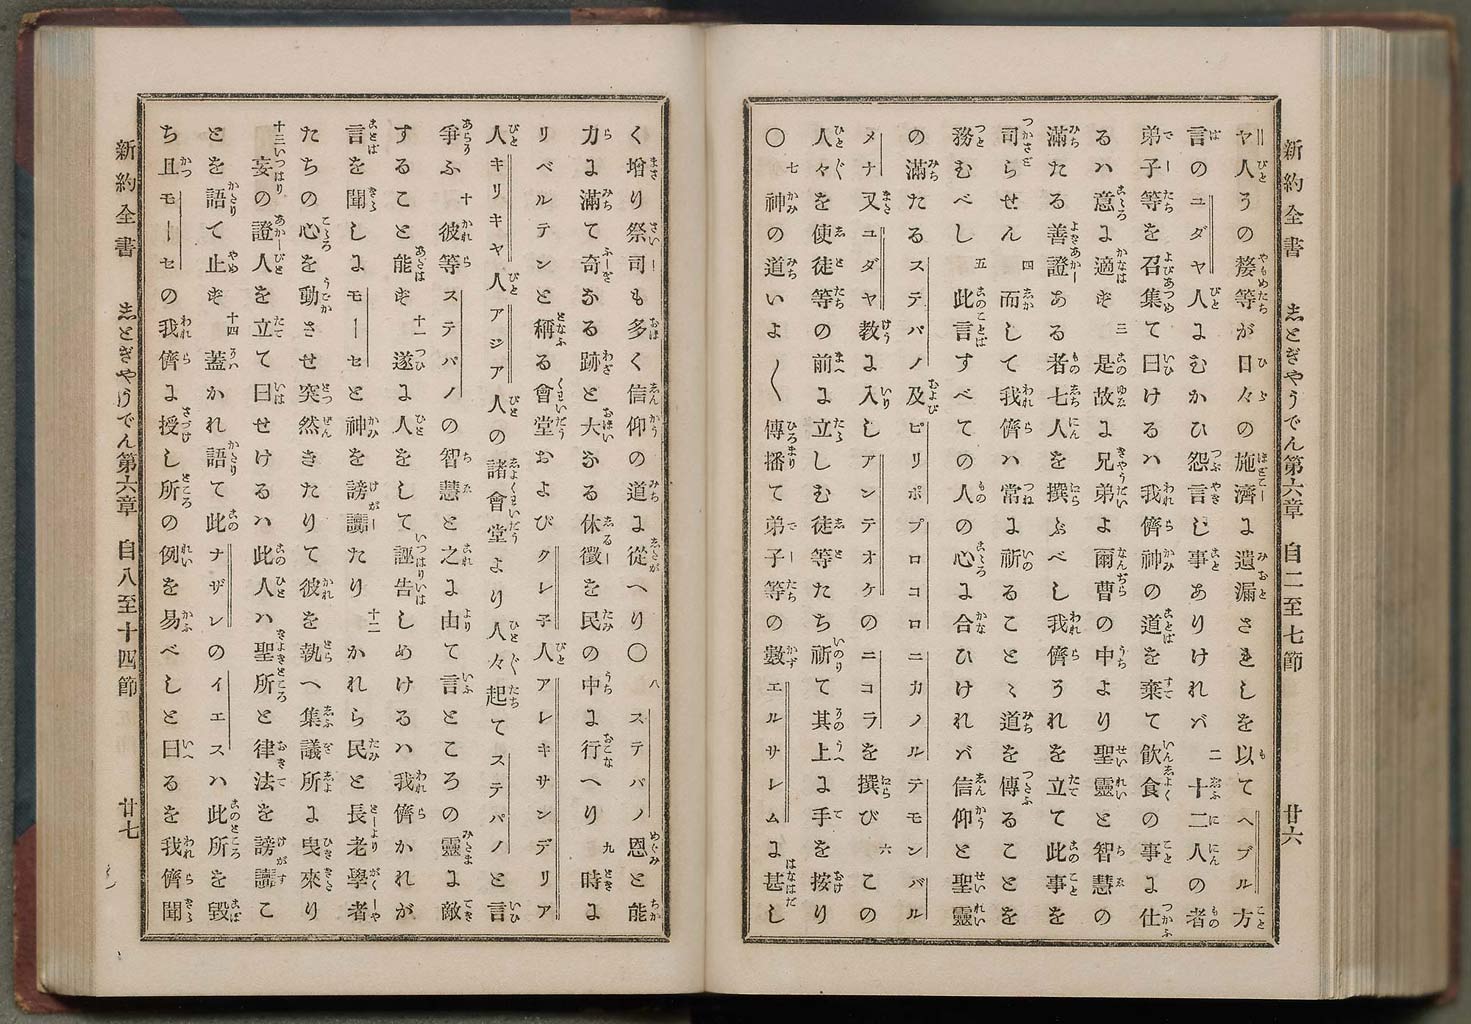 新約全書 志とぎやうでん第六章 自二至七節 廿六
ヤ人うの嫠等が日々の施濟に遺漏されしを以てヘブル方
言のユダヤ人にむかひ怨言し事ありけれバ 二 十二人の者
弟子等を召集て曰けるハ我儕神の道を棄て飮食の事に仕
るハ意に適ず 三 是故に兄弟よ爾曹の中より聖靈と智慧の
滿たる善證ある者七人を撰ぶべし我儕うれを立て此事を
司らせん 四 而して我儕ハ常に祈ることゝ道を傳ることを
務むべし 五 此言すべての人の心に合ひければ信仰と聖靈
の滿たるステパノ及ピリポプロコロニカノルテモンパル
メナ又ユダヤ教に入しアンテオケのニコラを撰び 六 この
人々を使徒等の前に立しむ徒等たち祈て其上に手を按り
〇 七 神の道いよ〱傳播て弟子等の數エルサレムに甚し
く增り祭司も多く信仰の道に從へり〇 八 ステパノ恩と能
力に滿て奇なる跡と大なる休徵を民の中に行へり 九 時に
リベルテンと稱る會堂およびクレ子人アレキサンデリア
人キリキヤ人アジア人の諸會堂より人々起てステパノと言
爭ふ 十 彼等ステパノの智慧と之に由て言ところの靈に敵
すること能ず 十一 遂に人をして誣告しめけるハ我儕かれが
言を聞しにモーセと神を謗讟たり 十二 かれら民と長老學者
たちの心を動させ突然きたりて彼を執へ集議所に曳來り
十三 妄の證人を立て曰せけるハ此人ハ聖所と律法を謗讟こ
とを語て止ず 十四 蓋かれ語て此ナザレのイエスハ此所を毀
ち且モーセの我儕に授し所の例を易べしと曰るを我儕聞
新約全書 志とぎやうでん第六章 自八至十四節 廿七